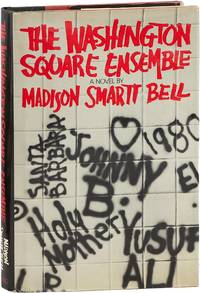 THE WASHINGTON
SQUARE ENSEMBLE
A NOVEL BY
MADISON SMARTT BELL
1980
SANTA
BARBARA
Johnny
B.
Holy
Mother
YUSUF
ALI